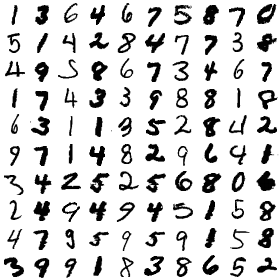 1 3 6 4 6 7 5 8 7 0
5 1 4 2 8 4 7 7 3 8
4 9 5 8 6 7 3 4 6 7
1 7 4 3 3 9 8 8 1 8
6 3 1 1 3 5 2 8 4 2
9 7 1 4 8 2 9 6 4 1
3 4 2 5 2 5 6 8 0 6
2 4 9 4 9 4 5 1 5 8
4 7 9 5 9 5 9 1 5 8
3 9 9 1 8 3 8 6 5 2